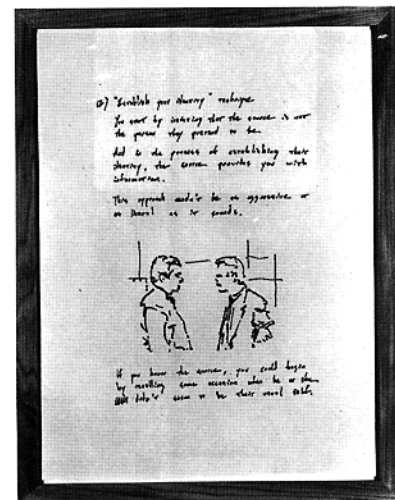 13) "Establish your identity" technique
You start by insisting that the source is not
the person they pretend to be.
And in the process of establishing their
identity, the source provides you with
information.
This approach needn't be as aggressive or
as literal as it sounds.
If you know the source, you could begin
by recalling some occasion when he or she
didn't seem to be their usual self.